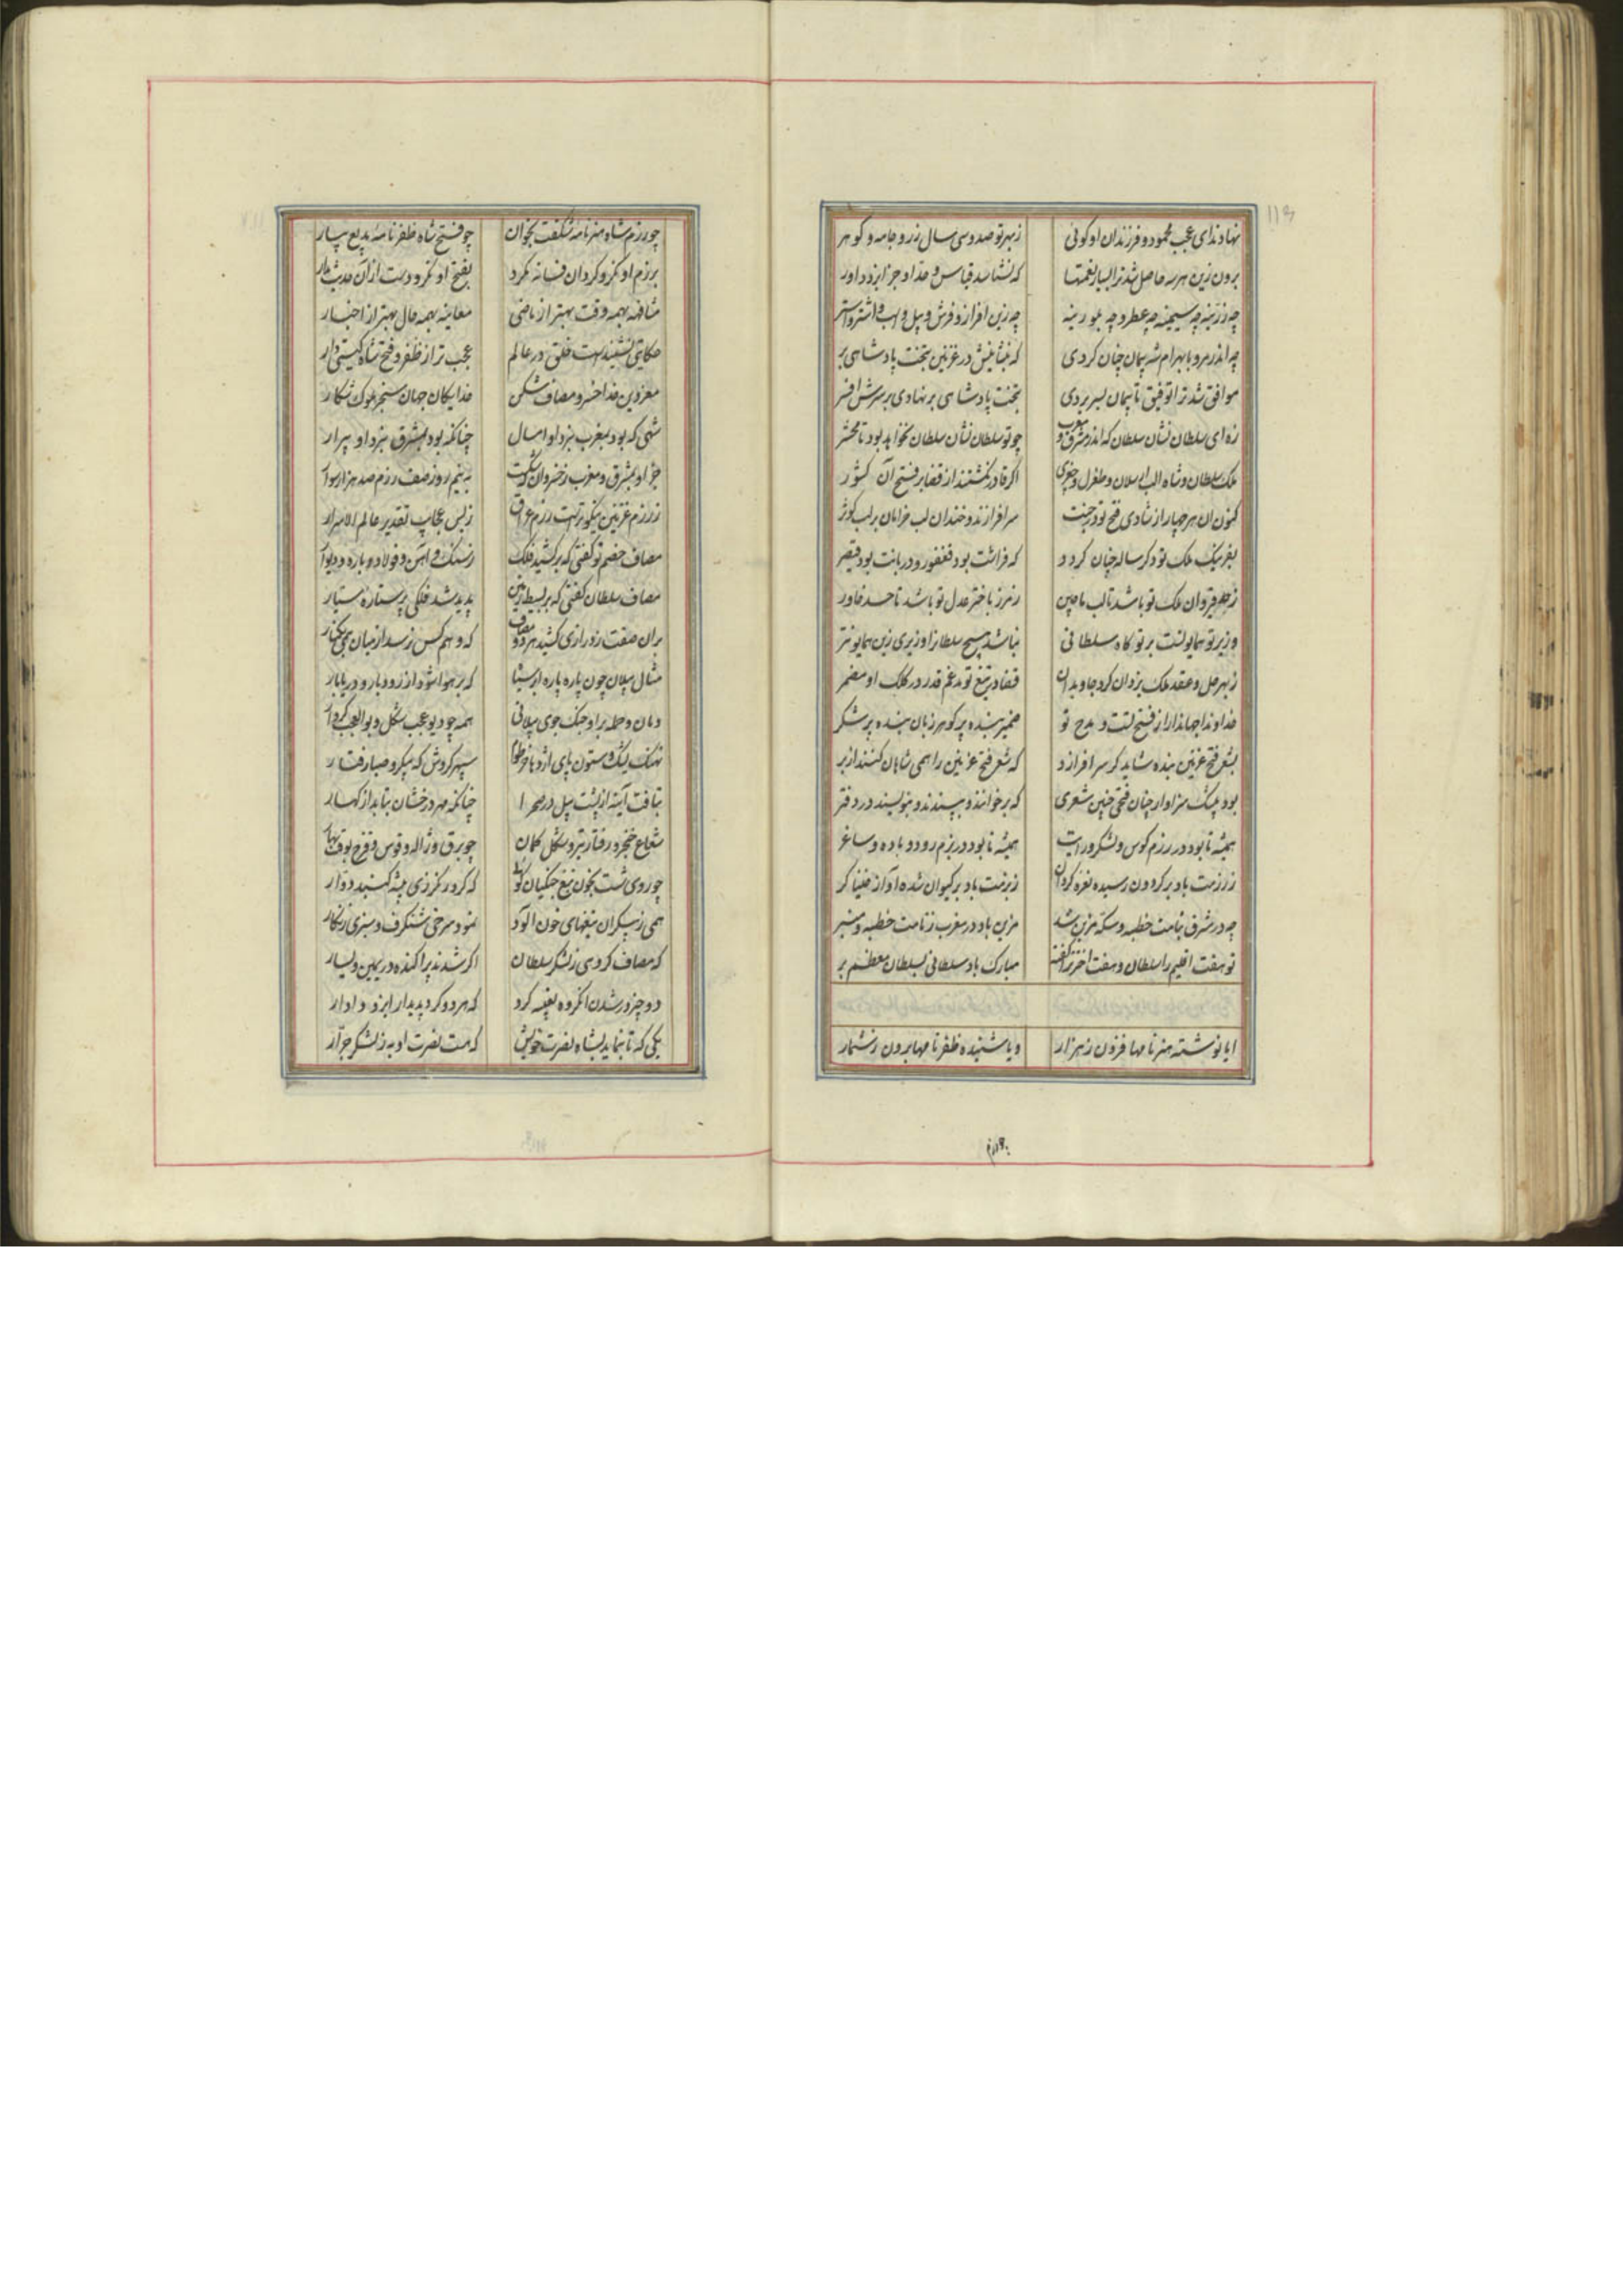 نهادند ای عجب محمود و فرزندان او گوئی ز بهر تو صد و سی سال زر و جامه و گوهر
برون زین هر سه حاصل شد ترا بسیار نعمتها که نشناسد قیاس و حد او جز ایزد داور
چه زرینه چه سیمینه چه عطر و چه بلورینه چه زین افزار و فرش و پیل و اسب و اشتر و استر
چه اندر مرو با بهرام شه پیمان چنان کردی که بنشانیش در غزنین بتخت پادشاهی بر
موافق شد ترا توفیق تا پیمان بسر بردی بتخت پادشاهی بر نهادی بر سرش افسر
زه ای سلطان نشان سلطان که اندر مشرق و مغرب چو تو سلطان نشان سلطان نخواهد بود تا محشر
ملک سلطان و شاه الب ارسلان و طغرل و جغری اگر قادر نگشتند از قضا بر فتح آن کشور
کنون آن هر چهار از شادی فتح تو در جنت سرافرازند و خندان لب خرامان بر لب کوثر
بفر نیک ملک تو دگر ساله چنان گردد که فراشت بود فغفور و دربانت بود قیصر
ز حد قیروان ملک تو باشد تا لب ماچین ز مرز باختر عدل تو باشد تا حد خاور
وزیر تو همایونست بر تو گاه سلطانی نباشد هیچ سلطانرا وزیری زین همایونتر
ز بهر حل و عقد ملک یزدان کرد جاویدان قضا در تیغ تو مدغم قدر در کلک او مضمر
خداوندا جهاندارا ز فتح تست و مدح تو ضمیر بنده پر گوهر زبان بنده پر شکر
بشعر فتح غزنین بنده شاید گر سر افرازد که شعر فتح غزنین را همی شاهان کنند از بر
بود بیشک سزاوار چنان فتحی چنین شعری که برخوانند و بپسندند و بنویسند در دفتر
همیشه تا بود در رزم کوس و لشکر و رایت همیشه تا بود در بزم رود و باده و ساغر
ز رزمت باد بر گردون رسیده نعره گردان ز بزمت باد بر کیوان شده آواز خنیاگر
چه در مشرق بنامت خطبه و سکه مزین شد مزین باد در مغرب ز نامت خطبه و منبر
تو هفت اقلیم را سلطان و هفت اختر ترا گفته مبارک باد سلطانی بسلطان معظم بر
ایا نوشته هنرنامها فزون ز هزار و یا شنیده ظفرنامها برون ز شمار
چو رزم شاه هنرنامه شگفت بخوان چو فتح شاه ظفرنامه بدیع بیار
برزم او نگر و گردان فسانه نگرد بفتح او نگر و دست ازان حدیث بدار
مشافهه بهمه وقت بهتر از ماضی معاینه بهمه حال بهتر از اخبار
حکایتی نشنیدست خلق در عالم عجب تر از ظفر و فتح شاه گیتی دار
معزدین خدا خسرو مصاف شکن خدایگان جهان سنجر ملوک شکار
شهی که بود بمغرب نبرد او امسال چنانکه بود بمشرق نبرد او پیرار
جز او بمشرق و مغرب ز خسروان که شکست به نیم روز صف رزم صد هزار سوار
ز رزم غزنین نیکوترست رزم عراق ز بس عجایب تقدیر عالم الاسرار
مصاف خصم تو گفتی که برکشید فلک ز سنگ و آهن و فولاد و باره و دیوار
مصاف سلطان گفتی که بر بسیط زمین پدید شد فلکی پر ستاره سیار
بران صفت ز درازی کشید هر دو مصاف که وهم کس نرسد از میان همی بکنار
مثال پیلان چون پاره پاره ابر سیاه که بر هوا شود از رودبار و دریابار
دمان و حمله بر او جنک جوی پیلانی همه چو دیو عجب شکل و بوالعجب کردار
نهنگ یشک و ستون پای اژدها خرطوم سپهر گردش که پیکر و صبا رفتار
بتافت آینه از پشت پیل در صحرا چنانکه مهر درخشان بتابد از کهسار
شعاع خنجر و رفتار تیر و شکل کمان چو برق و ژاله و قوس قزح بوقت بهار
چو روی شست بخون تیغ جنگیان گوئی که کرد رنگرزی پیشه گنبد دوار
همی ز پیکران تیغهای خون آلود نمود سرخی شنگرف و سبزی زنگار
که مصاف گروهی ز لشکر سلطان اگر شدند پراکنده در یمین و یسار
دو چیز در شدن آنگروه تعبیه کرد که هر دو کرد پدیدار ایزد دادار
یکی که تا بنماید بشاه نصرت خویش که هست نصرت او به ز لشکر جرار